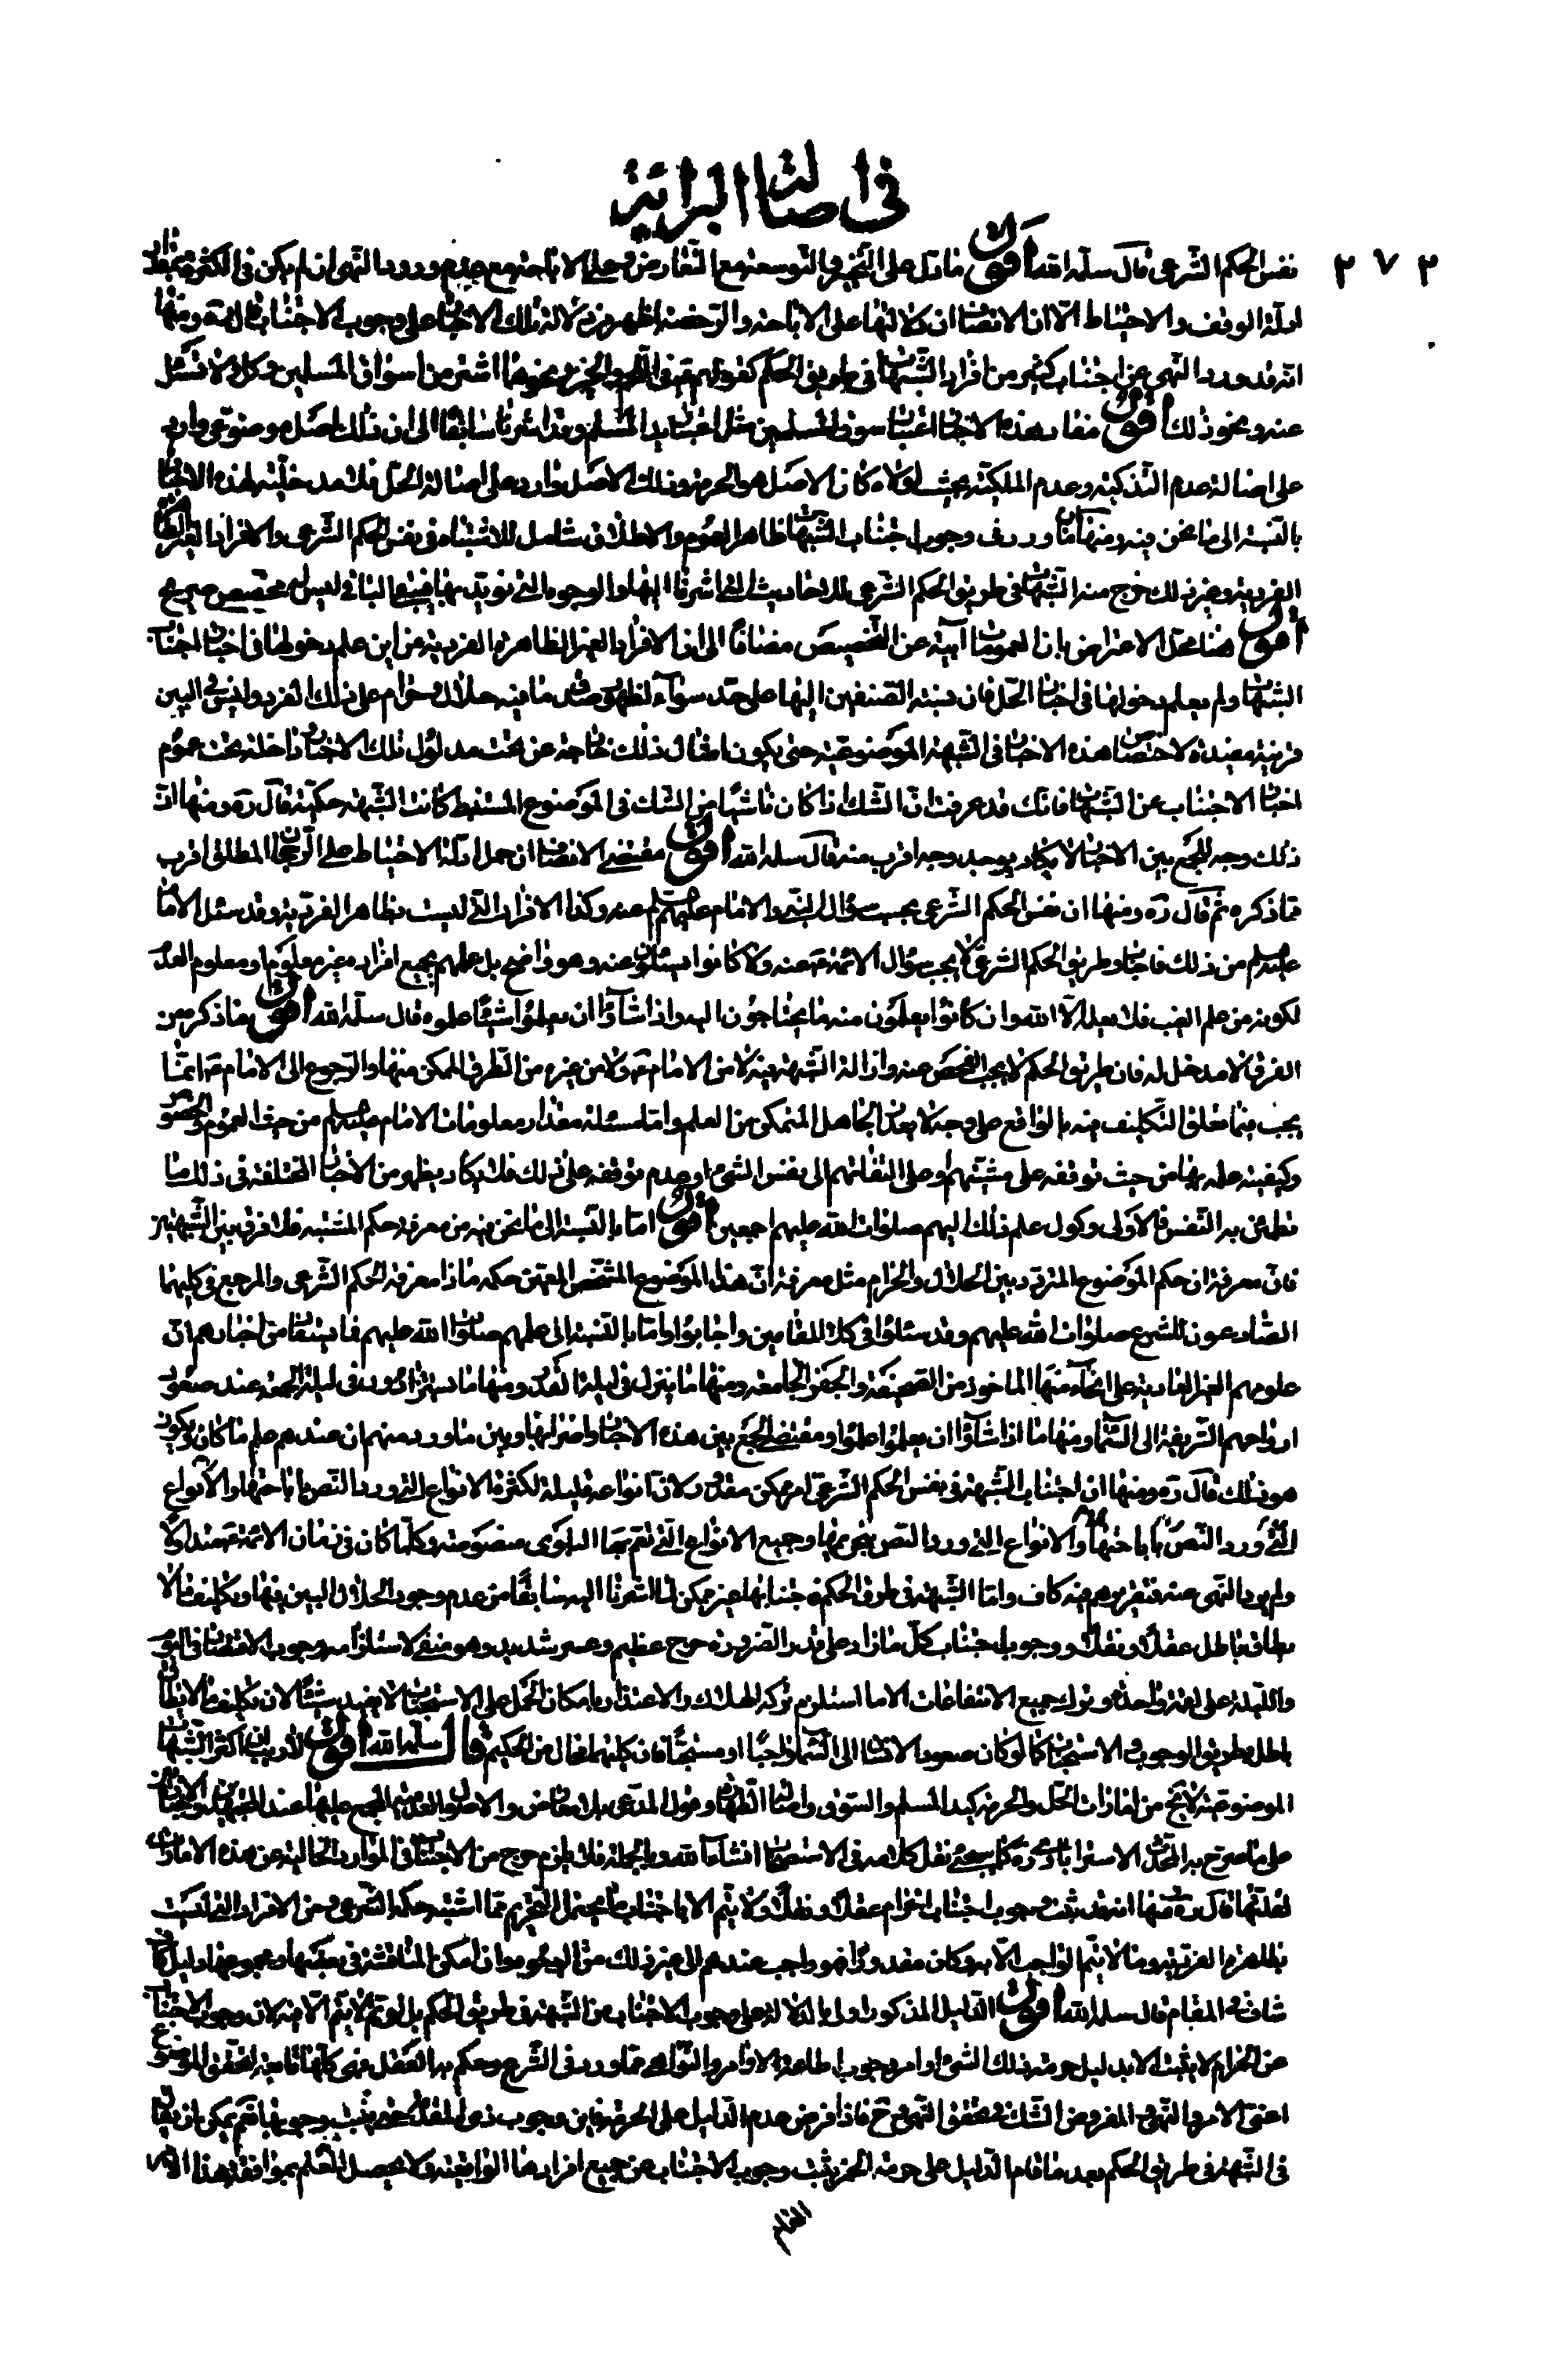 في اصالة البرائة
٢٧٢
نفس الحكم الشرعى قال سلمه الله اقول ما دل على التخيير والتوسعة مع التعارض وعلى الاباحة مع عدم ورود النهى ان لم يكن فى الكثرة بمقدار
ادلة الوقف والاحتياط الا ان الانصاف ان دلالتها على الاباحة والرخصة اظهر من دلالة تلك الاخبار على وجوب الاجتناب قال ره ومنها
انه قد ورد النهى عن اجتناب كثير من افراد الشبهات فى طريق الحكم كقولهم فى اللحم والجبن ونحوهما اشتر من اسواق المسلمين وكل ولا تسئل
عنه ونحو ذلك اقول مفاد هذه الاخبار اعتبار سوق المسلمين مثل اعتبار يد المسلم وقد اشرنا سابقا الى ان ذلك اصل موضوعى وارد
على اصالة عدم التذكية وعدم الملكية بحيث لولاه كان الاصل هو الحرمة وذلك الاصل وارد على اصالة الحل فلا مدخلية لهذه الاخبار
بالنسبة الى ما نحن فيه ومنها ان ما ورد فى وجوب اجتناب الشبهات ظاهر العموم والاطلاق شامل للاشتباه فى نفس الحكم الشرعى والافراد الغير الظاهرة
الفردية وغير ذلك خرج منه الشبهات فى طريق الحكم الشرعى للاحاديث التى اشرنا اليها والوجوه التى نؤيد بها فيبقى الباقى ليس له مخصص صريح
اقول هنا محل الاعتراض بان العمومات آبية عن التخصيص مضافا الى ان الافراد الغير الظاهرة الفردية من اين علم دخولها فى اخبار اجتناب
الشبهات ولم يعلم دخولها فى اخبار الحل فان نسبة الصنفين اليها على حد سواء لظهور صدق ما فيه حلال وحرام على ذلك الفرد وليس فى البين
قرينة مفيدة لاختصاص هذه الاخبار فى الشبهة الموضوعية حتى يكون امثال ذلك خارجة عن تحت مدلول تلك الاخبار داخلة تحت عموم
اخبار الاجتناب عن الشبهات فانك قد عرفت ان الشك اذا كان ناشيا من الشك فى الموضوع المستنبط كانت الشبهة حكمية قال ره ومنها ان
ذلك وجه للجمع بين الاخبار لا يكاد يوجد وجه اقرب منه قال سلمه الله اقول مقتضى الانصاف ان حمل ادلة الاحتياط على الرجحان المطلق اقرب
مما ذكره ثم قال ره ومنها ان نفس الحكم الشرعى يجب سؤال النبى والامام عليهم السلم عنه وكذا الافراد التى ليست بظاهر الفردية وقد سئل الامام
عليه السلم من ذلك فاجاب وطريق الحكم الشرعى لا يجب سؤال الائمة ع عنه ولا كانوا يسئلون عنه وهو واضح بل علمهم بجميع افراده غير معلوم او معلوم العدم
لكونه من علم الغيب فلا يعلمه الا الله وان كانوا يعلمون منه ما يحتاجون اليه واذا شاؤا ان يعلموا شيئا علموه قال سلمه الله اقول ما ذكره من
الفرق لا مدخل له فان طريق الحكم لا يجب الفحص عنه وازالة الشبهة فيه لا من الامام ع ولا من غيره من الطرق الممكن منها والرجوع الى الامام ع انما
يجب فيما تعلق التكليف فيه بالواقع على وجه لا يعذر الجاهل المتمكن من العلم واما مسئلة مقدار معلومات الامام عليه السلم من حيث العموم والخصوص
وكيفية علمه بها من حيث توقفه على مشيتهم او على التفاتهم الى نفس الشئ او عدم توقفه على ذلك فلا يكاد يظهر من الاخبار المختلفة فى ذلك ما
تطمئن به النفس فالاولى وكول علم ذلك اليهم صلوات الله عليهم اجمعين اقول اما بالنسبة الى ما نحن فيه من معرفة حكم المشتبه فلا فرق بين الشبهتين
فان معرفة ان حكم الموضوع المتردد بين الحلال والحرام مثل معرفة ان هذا الموضوع المشخص المعين حكمه ماذا معرفة الحكم الشرعى والمرجع فى كليهما
الصادعون للشرع صلوات الله عليهم وقد سئلوا فى كلا المقامين واجابوا واما بالنسبة الى علمهم صلوات الله عليهم فما يستفاد من اخبارهم ان
علومهم الغير العادية على انحاء منها الماخوذ من الصحيفة والجفر الجامعة ومنها ما ينزل فى ليلة القدر ومنها ما يستزادون فى ليلة الجمعة عند صعود
ارواحهم الشريفة الى السماء ومنها ما اذا شاؤا ان يعلموا علموا ومقتضى الجمع بين هذه الاخبار واضرابها وبين ما ورد منهم ان عندهم علم ما كان وما يكون
هو ذلك قال ره ومنها ان اجتناب الشبهة فى نفس الحكم الشرعى امر ممكن مقدور لان انواعه قليلة لكثرة الانواع التى ورد النص باباحتها والانواع
التى ورد النص باباحتها والانواع التى ورد النص بتحريمها وجميع الانواع التى تعم بها البلوى منصوصة وكلما كان فى زمان الائمة ع متداولا
ولم يرد النهى عنه فتقريرهم فيه كاف واما الشبهة فى طريق الحكم فاجتنابها غير ممكن لما اشرنا اليه سابقا من عدم وجود الحلال البين فيها وتكليف ما لا
يطاق باطل عقلا ونقلا ووجوب اجتناب كل ما زاد على قدر الضرورة حرج عظيم وعسر شديد وهو منفى لاستلزامه وجوب الاقتصار فى اليوم
والليلة على لقمة واحدة وترك جميع الانتفاعات الا ما استلزم تركه الهلاك والاعتذار بامكان الحمل على الاستحباب لا يفيد شيئا لان تكليف ما لا يطاق
باطل بطريق الوجوب والاستحباب كما لو كان صعود الانسان الى السماء واجبا او مستحبا فان كليهما محال من الحكيم قال سلمه الله اقول لا ريب ان اكثر الشبهات
الموضوعية لا يخ من امارات الحل والحرمة كيد المسلم والسوق واصالة الطهارة وقول المدعى بلا معارض والاصول العدمية المجمع عليها عند المجتهدين والاخباريين
على ما صرح به المحدث الاسترابادى ره كما سيجئ نقل كلامه فى الاستصحاب انشاء الله وبالجملة فلا يلزم حرج من الاجتناب فى الموارد الخالية عن هذه الامارات
لقلتها قال ره ومنها انه قد ثبت وجوب اجتناب الحرام عقلا ونقلا ولا يتم الا باجتناب ما يحتمل التحريم مما اشتبه حكمه الشرعى ومن الافراد التى ليست
بظاهرة الفردية وما لا يتم الواجب الا به وكان مقدورا فهو واجب عندهم الى غير ذلك من الوجوه وان امكن المناقشة فى بعضها ومجموعها دليل كاف
شاف فى المقام قال سلمه الله اقول الدليل المذكور اولى بالدلالة على وجوب الاجتناب عن الشبهة فى طريق الحكم بل لو تم لا يتم الا فيه لان وجوب الاجتناب
عن الحرام لا يثبت الا بدليل حرمة ذلك الشئ او امر وجوب اطاعة الاوامر والنواهى مما ورد فى الشرع وحكم به العقل فهى كلها تابعة لتحقق الموضوع
اعنى الامر والنهى والمفروض الشك فى تحقق النهى وح فاذا فرض عدم الدليل على الحرمة فاين وجوب ذى المقدمة حتى يثبت وجوبها نعم يمكن ان يقال
فى الشبهة فى طريق الحكم بعد ما قام الدليل على حرمة الخمر يثبت وجوب الاجتناب عن جميع افرادها الواقعية ولا يحصل العلم بموافقة هذا الامر